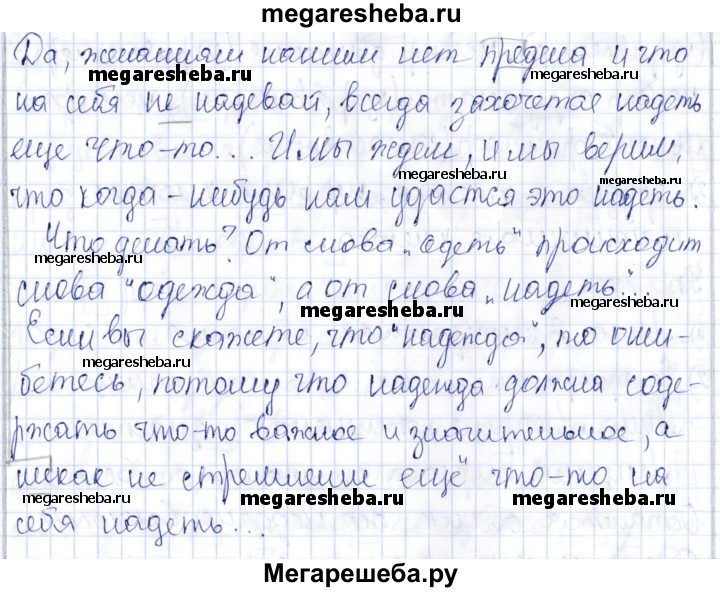 megaresheba.ru
Да, желаниям нашим нет предела и что
megaresheba.ru
megaresheba.ru
на себя не надевай, всегда захочется надеть
еще что-то... И мы ждем, и мы верим,
megaresheba.ru
megaresheba.ru
что когда-нибудь нам удастся это надеть.
Что делать? От слова „одеть" происходит
megaresheba.ru
megaresheba.ru
слова "одежда", а от слова „надеть"...
megaresheba.ru
megaresheba.ru
Если вы скажете, что "надежда", то оши-
megaresheba.ru
бетесь, потому что надежда должна соде-
ржать что-то важное и значительное, а
никак не стремление ещё что-то на
megaresheba.ru
megaresheba.ru
megaresheba.ru
себя надеть...
Мегарешеба.ру